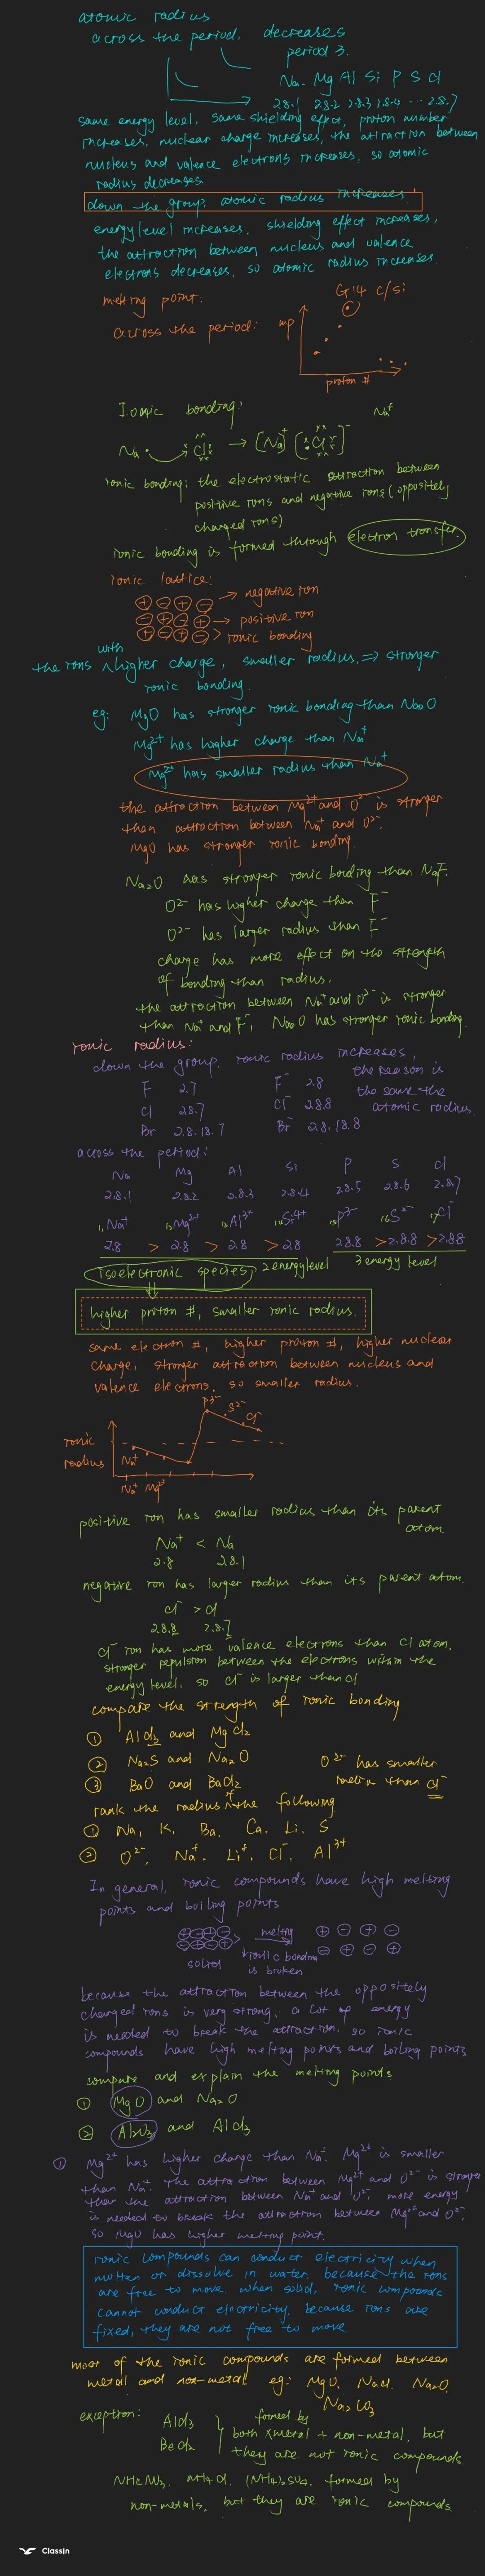 atomic radius
across the period, decreases
period 3.
Na. Mg Al Si P S Cl
2.8.1 2.8.2 2.8.3 2.8.4 ... 2.8.7
same energy level, same shielding effect, proton number
increases, nuclear charge increases, the attraction between
nucleus and valence electrons increases, so atomic
radius decreases.
down the group, atomic radius increases.
energy level increases, shielding effect increases,
the attraction between nucleus and valence
electrons decreases, so atomic radius increases.
melting point:
G14 C/Si
across the period:
mp
proton #
Ionic bonding:
Na⁺
Na· Cl → [Na]⁺ [Cl]⁻
ionic bonding: the electrostatic attraction between
positive ions and negative ions (oppositely
charged ions)
ionic bonding is formed through electron transfer.
ionic lattice:
+ - + - → negative ion
- + - + → positive ion
+ - + - > ionic bonding
with
the ions ^ higher charge, smaller radius, ⇒ stronger
ionic bonding.
eg: MgO has stronger ionic bonding than Na₂O
Mg²⁺ has higher charge than Na⁺
Mg²⁺ has smaller radius than Na⁺
the attraction between Mg²⁺ and O²⁻ is stronger
than attraction between Na⁺ and O²⁻.
MgO has stronger ionic bonding.
Na₂O has stronger ionic bonding than NaF.
O²⁻ has higher charge than F⁻
O²⁻ has larger radius than F⁻
charge has more effect on the strength
of bonding than radius.
the attraction between Na⁺ and O²⁻ is stronger
than Na⁺ and F⁻, Na₂O has stronger ionic bonding.
ionic radius:
down the group, ionic radius increases,
F 2.7 F⁻ 2.8 the reason is
Cl 2.8.7 Cl⁻ 2.8.8 the same the
Br 2.8.18.7 Br⁻ 2.8.18.8 atomic radius.
across the period:
Na Mg Al Si P S Cl
2.8.1 2.8.2 2.8.3 2.8.4 2.8.5 2.8.6 2.8.7
₁₁Na⁺ ₁₂Mg²⁺ ₁₃Al³⁺ ₁₄Si⁴⁺ ₁₅P³⁻ ₁₆S²⁻ ₁₇Cl⁻
2.8 > 2.8 > 2.8 > 2.8 2.8.8 > 2.8.8 > 2.8.8
isoelectronic species 2 energy level 3 energy level
higher proton #, smaller ionic radius.
same electron #, higher proton #, higher nuclear
charge, stronger attraction between nucleus and
valence electrons, so smaller radius.
P³⁻ S²⁻ Cl⁻
ionic
radius
Na⁺
Na⁺ Mg²⁺
positive ion has smaller radius than its parent
atom
Na⁺ < Na
2.8 2.8.1
negative ion has larger radius than its parent atom.
Cl⁻ > Cl
2.8.8 2.8.7
Cl⁻ ion has more valence electrons than Cl atom,
stronger repulsion between the electrons within the
energy level, so Cl⁻ is larger than Cl.
compare the strength of ionic bonding
① AlCl₃ and MgCl₂
② Na₂S and Na₂O
③ BaO and BaCl₂
O²⁻ has smaller
radius than Cl⁻
rank the radius of the following
① Na, K, Ba, Ca, Li, S
② O²⁻, Na⁺, Li⁺, Cl⁻, Al³⁺
In general, ionic compounds have high melting
points and boiling points
+ - + - melting + - + -
- + - + ionic bonding - + - +
solid is broken
because the attraction between the oppositely
charged ions is very strong, a lot of energy
is needed to break the attraction. so ionic
compounds have high melting points and boiling points
compare and explain the melting points
① MgO and Na₂O
② Al₂O₃ and AlCl₃
① Mg²⁺ has higher charge than Na⁺. Mg²⁺ is smaller
than Na⁺. the attraction between Mg²⁺ and O²⁻ is stronger
than the attraction between Na⁺ and O²⁻, more energy
is needed to break the attraction between Mg²⁺ and O²⁻.
so MgO has higher melting point.
ionic compounds can conduct electricity when
molten or dissolve in water, because the ions
are free to move. when solid, ionic compounds
cannot conduct electricity, because ions are
fixed, they are not free to move
most of the ionic compounds are formed between
metal and non-metal. eg: MgO, NaCl, Na₂O.
Na₂CO₃
exception: AlCl₃ } formed by
BeCl₂ both metal + non-metal, but
they are not ionic compounds.
NH₄NO₃, NH₄Cl, (NH₄)₂SO₄, formed by
non-metals, but they are ionic compounds.
ClassIn